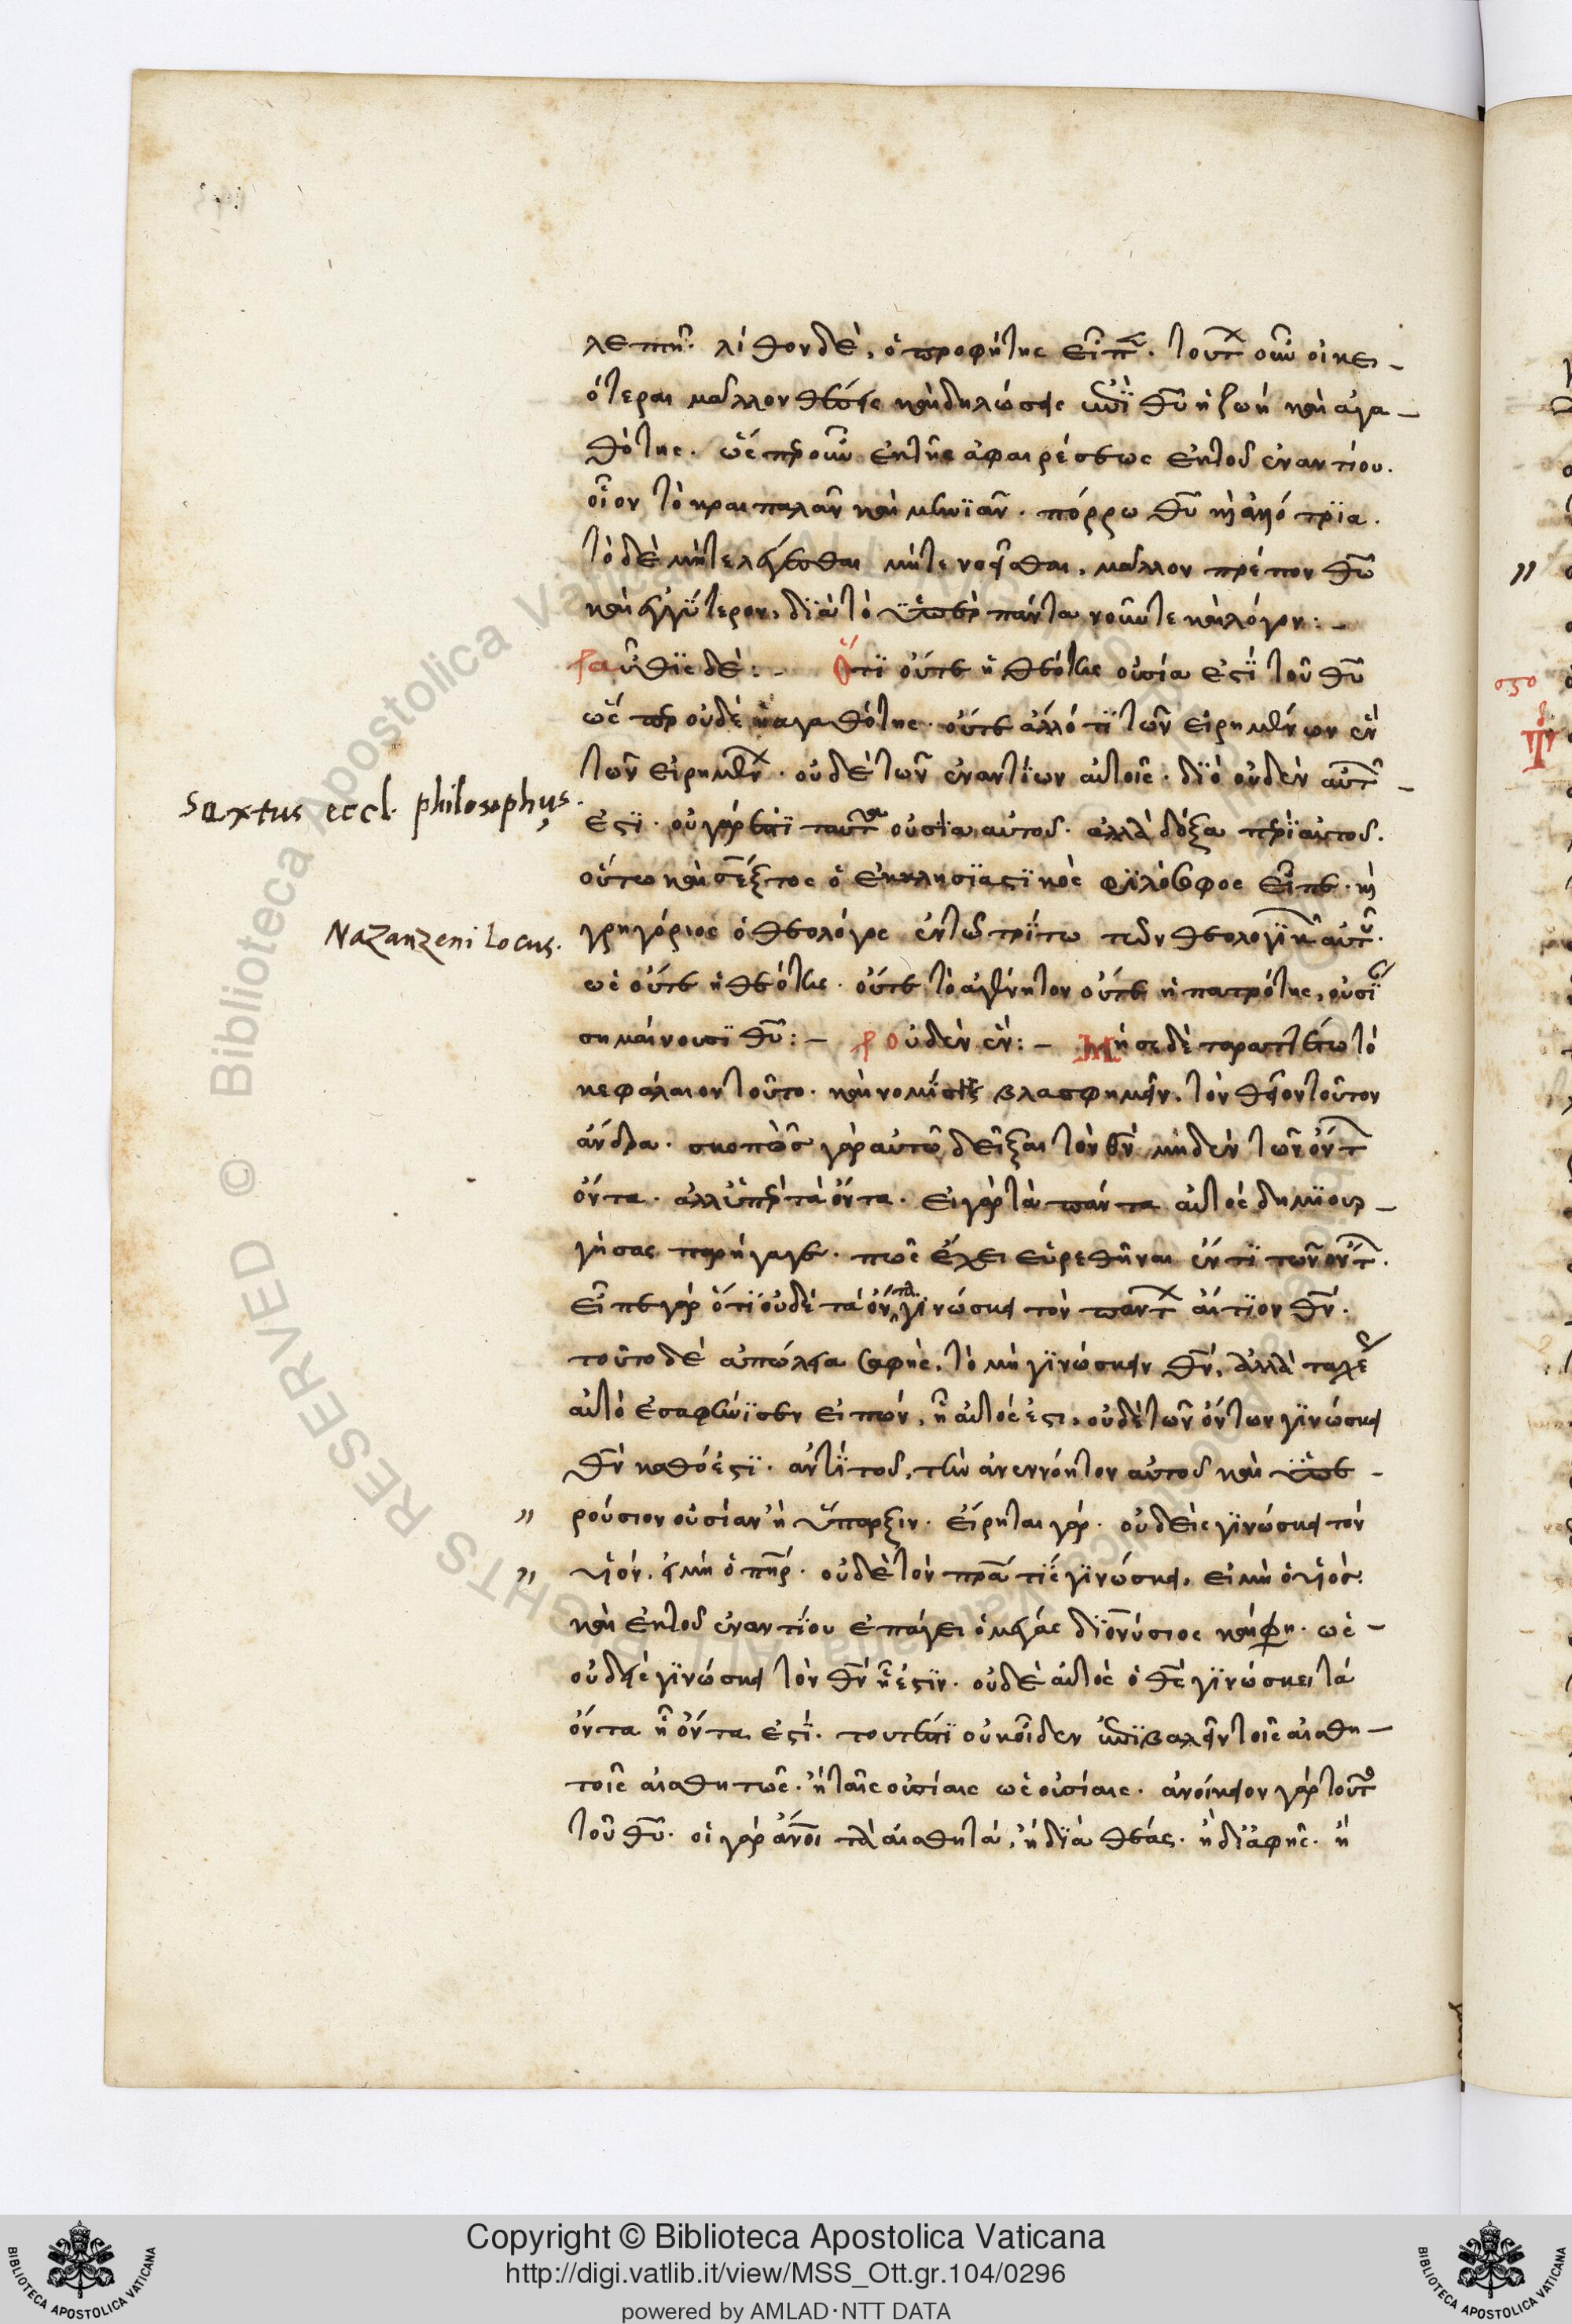 λεπτην. λίθον δὲ, ὁ προφήτης εἶπεν. τούτων οὖν οἰκει-
ότεραι μᾶλλον θέσεις καὶ δηλώσεις ἐπὶ θυ ἡ ζωὴ καὶ ἀγα-
θότης. ὥσπερ οὖν ἐκ τῆς ἀφαιρέσεως ἐκ τοῦ ἐναντίου.
οἷον τὸ κραιπαλᾶν καὶ μηνιᾶν. πόρρω θυ καὶ ἀλλότρια.
τὸ δὲ μήτε λέγεσθαι μήτε νοεῖσθαι, μᾶλλον πρέπον θω
καὶ ἐγγύτερον, διὰ τὸ ὑπὲρ πάντα νοῦν τε καὶ λόγον:-
ρα ὖθις δὲ:- Ὅτι οὔτε ἡ θεότης οὐσία ἐστὶ τοῦ θυ
ὥσπερ οὐδὲ ἡ ἀγαθότης. οὔτε ἄλλό τι τῶν εἰρημένων ἐν
τῶν εἰρημένων. οὐδὲ τῶν ἐναντίων αὐτοῖς. διὸ οὐδὲν αὐτῶν
ἐστι. οὐ γάρ ἐστι ταῦτα οὐσία αὐτοῦ. ἀλλὰ δόξα περὶ αὐτοῦ.
Sextus eccl. philosophus.
οὕτω καὶ σέξτος ὁ ἐκκλησιαστικὸς φιλόσοφος εἶπε. καὶ
Nazanzeni Locus.
γρηγόριος ὁ θεολόγος ἐν τῷ τρίτω τῶν θεολογικῶν αὐτοῦ.
ὡς οὔτε ἡ θεότης. οὔτε τὸ ἀγένητον οὔτε ἡ πατρότης, οὐσίαν
σημαίνουσι θυ:- ρ οὐδὲν ἐν:- Μή σε δὲ ταραττέτω τὸ
κεφάλαιον τοῦτο. καὶ νομίσῃς βλασφημεῖν, τὸν θεῖον τοῦτον
ἄνδρα. σκοπὸς γὰρ αὐτῶ δεῖξαι τὸν θν μηδὲν τῶν ὄντων
ὄντα. ἀλλ' ὑπὲρ τὰ ὄντα. εἰ γὰρ τὰ πάντα αὐτὸς δημιουρ-
γήσας παρήγαγε. πῶς ἔχει εὑρεθῆναι ἕν τι τῶν ὄντων.
εἶπε γὰρ ὅτι οὐδὲ τὰ ὄντα γινώσκει τὸν πάντων αἴτιον θν.
τοῦτο δὲ ἀπώλεια σαφὴς, τὸ μὴ γινώσκειν θν, ἀλλὰ ταχέως
αὐτὸ ἐσαφήνισεν εἰπών, ᾗ αὐτός ἐστι, οὐδὲ τῶν ὄντων γινώσκει
θν καθό ἐστι. ἀντὶ τοῦ, τὴν ἀνεννόητον αὐτοῦ καὶ ὑπε-
" ρούσιον οὐσίαν ἢ ὕπαρξιν. εἴρηται γάρ. οὐδεὶς γινώσκει τὸν
" υἱόν, εἰ μὴ ὁ πηρ. οὐδὲ τὸν πρα τίς γινώσκει, εἰ μὴ ὁ υἱός.
καὶ ἐκ τοῦ ἐναντίου ἐπάγει ὁ μέγας διονύσιος καί φη. ὡς-
οὐδεὶς γινώσκει τὸν θν ᾗ ἐστιν. οὐδὲ αὐτὸς ὁ θς γινώσκει τὰ
ὄντα ᾗ ὄντα ἐστί. τουτέστι οὐκ οἶδεν ἐπιβαλεῖν τοῖς αἰσθη-
τοῖς αἰσθητῶς. ἢ ταῖς οὐσίαις ὡς οὐσίαις. ἀνοίκειον γὰρ τοῦτο
τοῦ θυ. οἱ γὰρ ἄνοι τὰ αἰσθητά, ἢ διὰ θέας. ἢ δι' ἀφῆς. ἢ
Copyright © Biblioteca Apostolica Vaticana
http://digi.vatlib.it/view/MSS_Ott.gr.104/0296
powered by AMLAD·NTT DATA